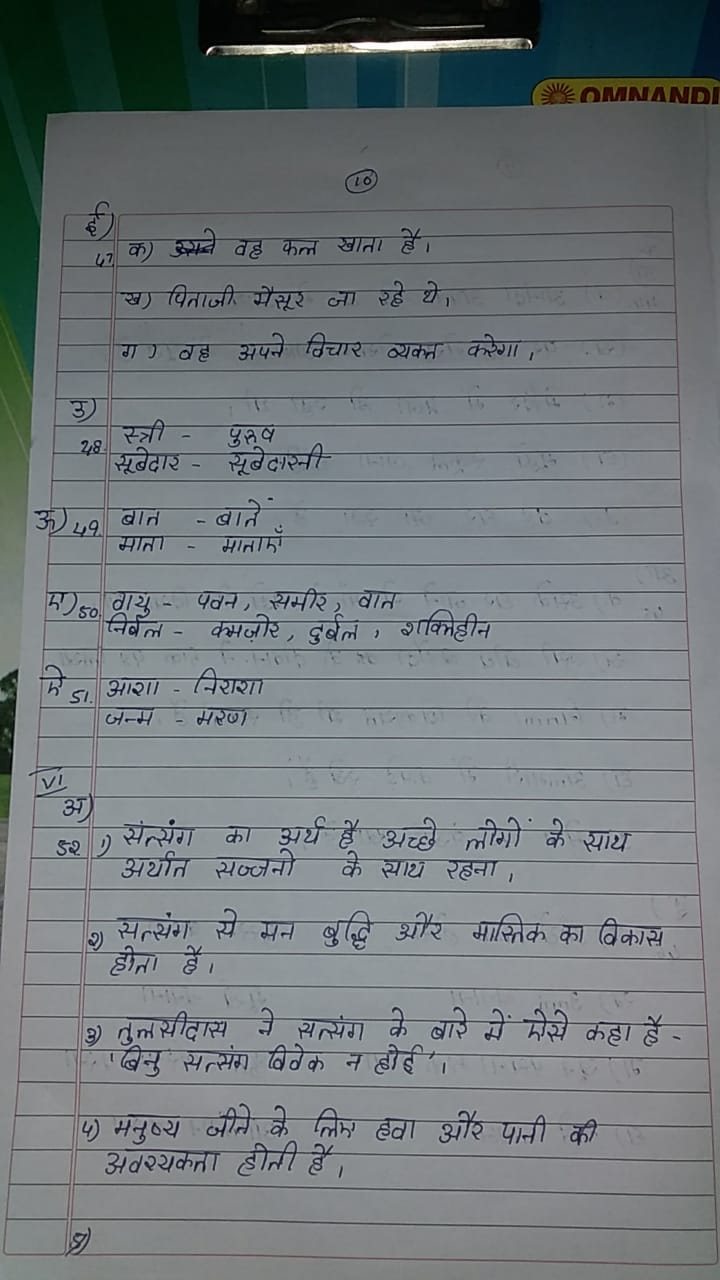 OMNANDI
10
ई)
47 क) वह फल खाता है।
ख) पिताजी मैसूर जा रहे थे।
ग) वह अपने विचार व्यक्त करेगा।
उ)
48. स्त्री - पुरुष
सूबेदार - सूबेदारनी
ऊ) 49. बात - बातें
माता - माताएँ
ए) 50. वायु - पवन, समीर, वात
निर्बल - कमज़ोर, दुर्बल, शक्तिहीन
ऐ 51. आशा - निराशा
जन्म - मरण
VI
अ)
52. 1) संत्संग का अर्थ है अच्छे लोगों के साथ
अर्थात सज्जनो के साथ रहना।
2) सत्संग से मन बुद्धि और मास्तिक का विकास
होता है।
3) तुलसीदास ने सत्संग के बारे में ऐसे कहा है -
'बिनु सत्संग विवेक न होई'।
4) मनुष्य जीने के लिए हवा और पानी की
अवश्यकता होती है।